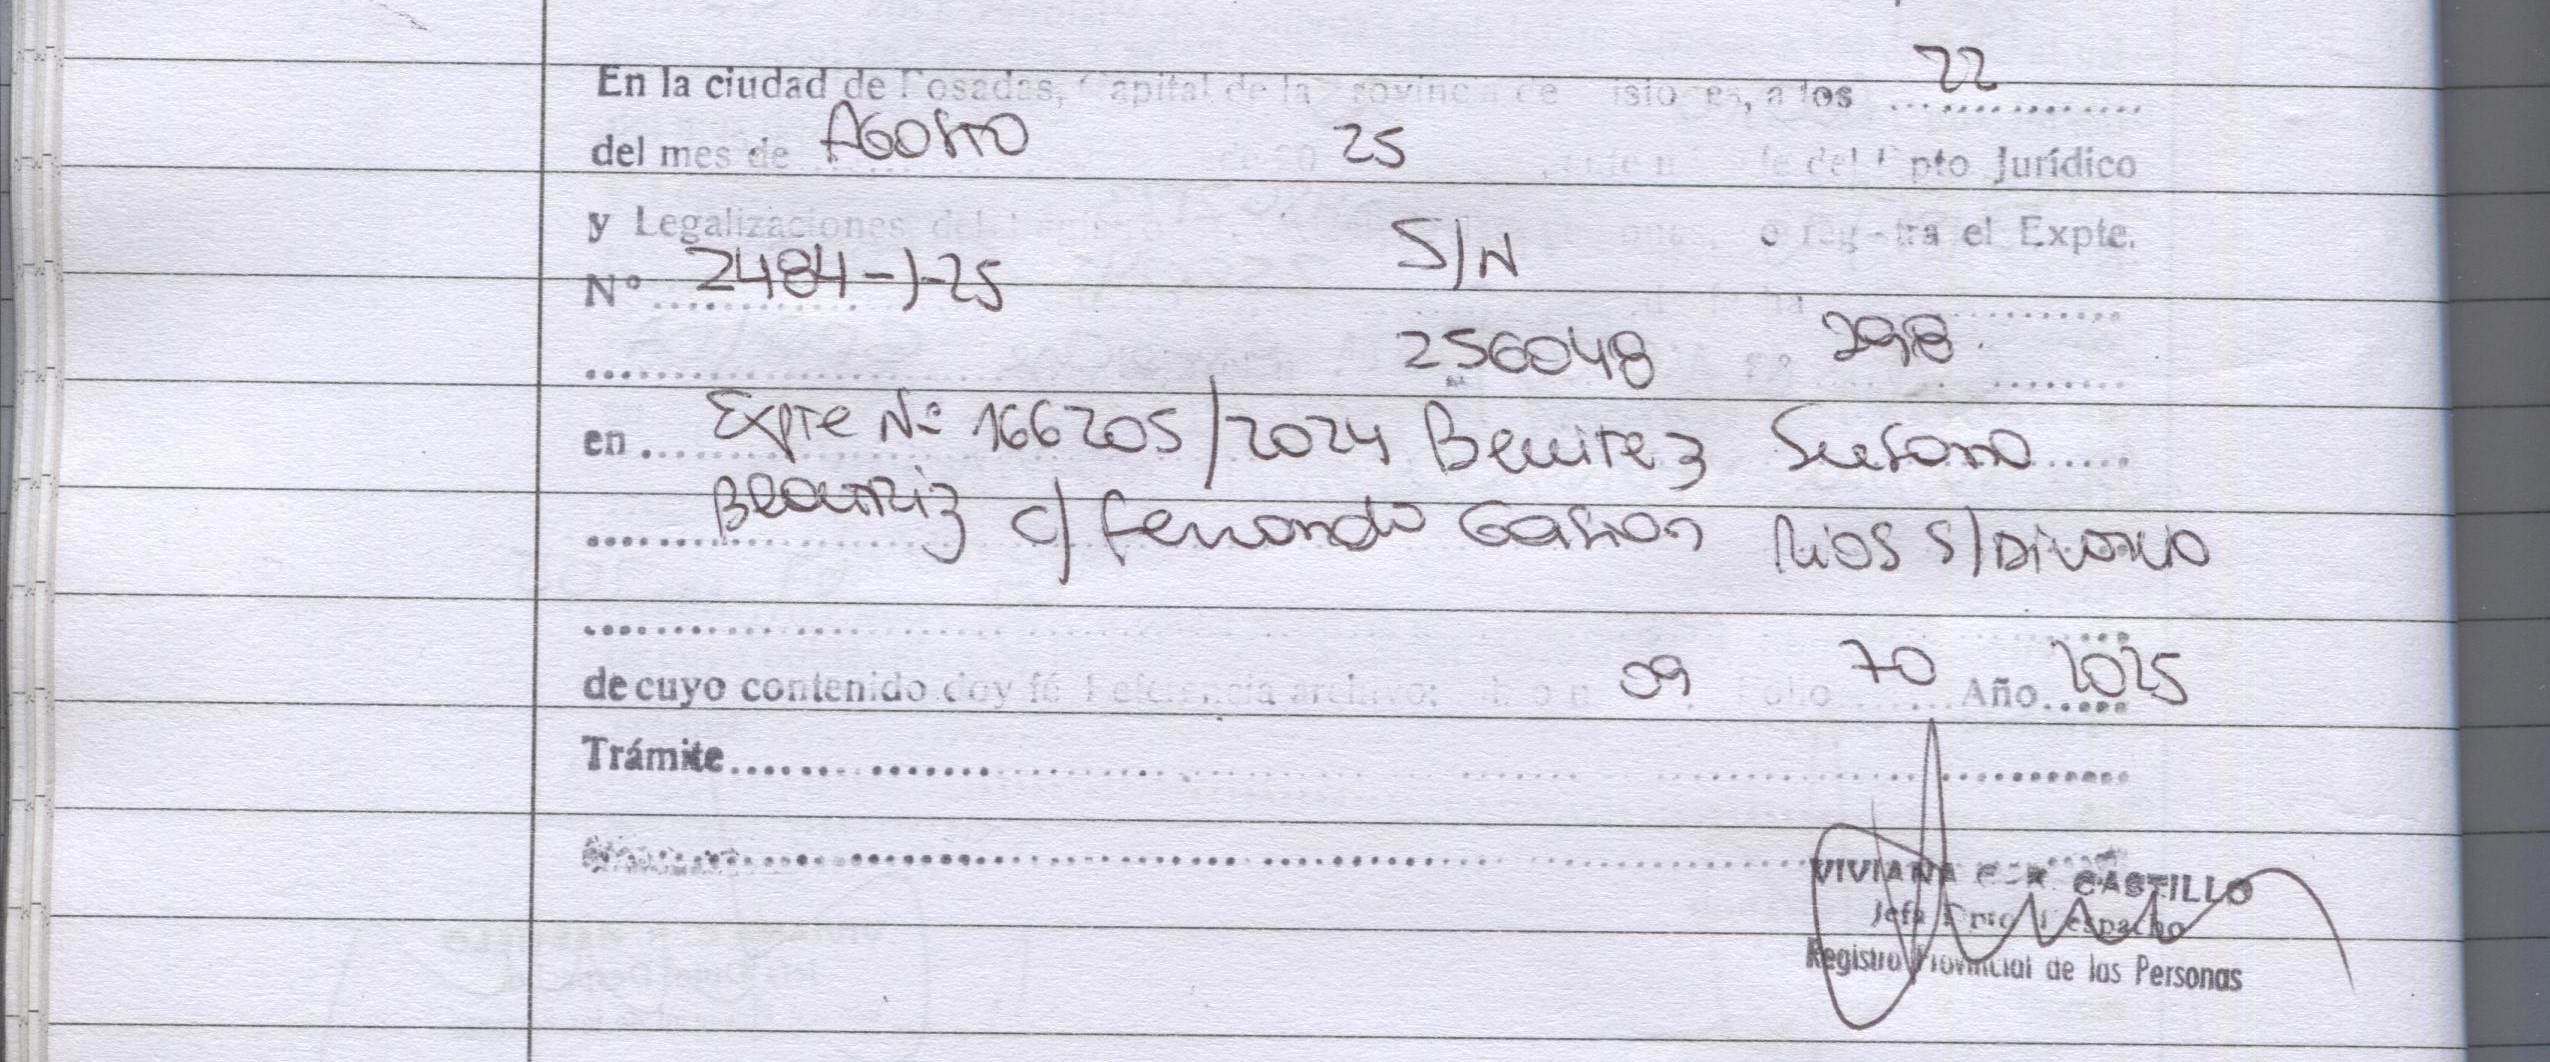 En la ciudad de Posadas, Capital de la Provincia de Misiones, a los 22
del mes de Agosto de 20 25, ante mí Jefe del Dpto Jurídico
y Legalizaciones del se registra el Expte.
N° 2484-J-25 S/N
256048 298
en Expte N° 166205/2024 Benitez Susana
Beatriz c/ Fernando Gaston Rios s/Divorcio
de cuyo contenido doy fé Referencia archivo: Libro n 09 Folio 70 Año 2025
Trámite
VIVIANA CASTILLO
Jefa Dpto Despacho
Registro Provincial de las Personas